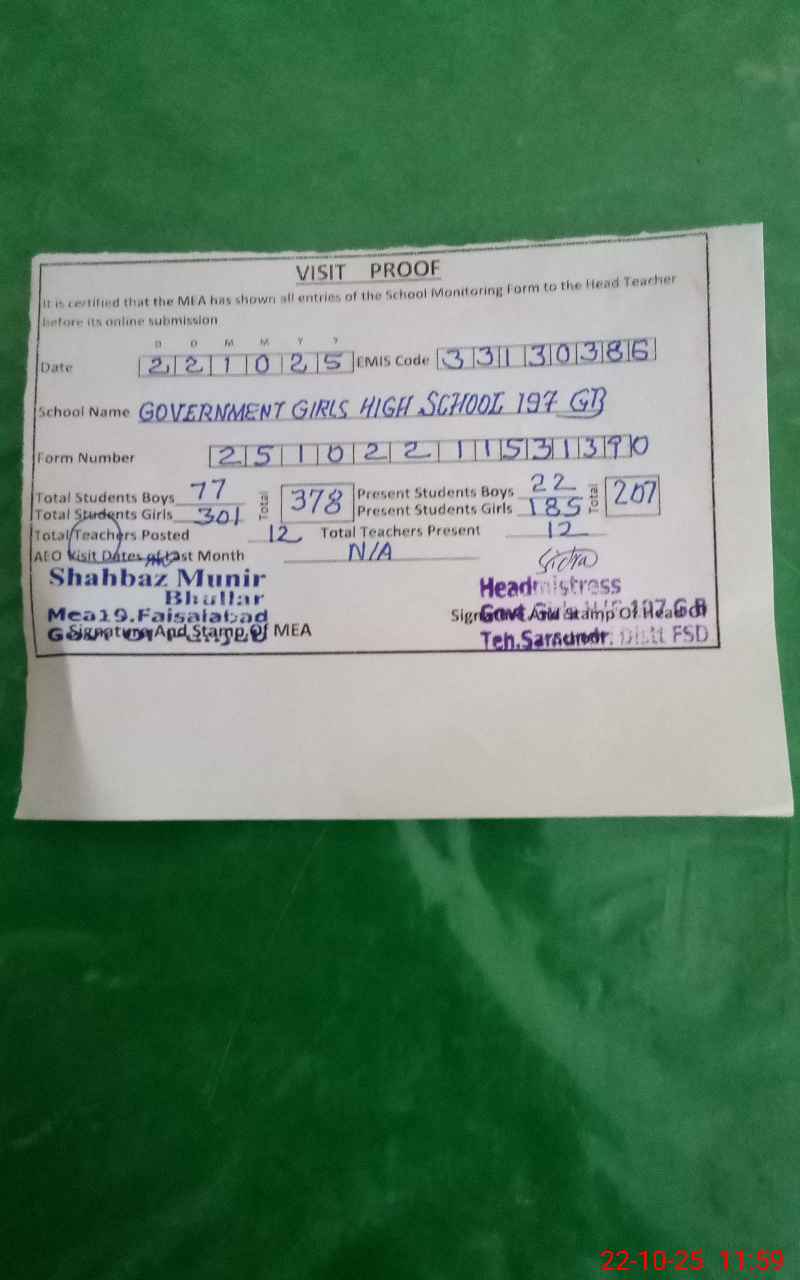 VISIT PROOF
It is certified that the MEA has shown all entries of the School Monitoring Form to the Head Teacher
before its online submission
D D M M Y Y
Date 221025 EMIS Code 33130386
School Name GOVERNMENT GIRLS HIGH SCHOOL 197 GB
Form Number 25102211531390
Total Students Boys 77 Total 378 Present Students Boys 22 Total 207
Total Students Girls 301 Present Students Girls 185
Total Teachers Posted 12 Total Teachers Present 12
AEO Visit Dates of Last Month N/A
Shahbaz Munir
Bhullar
Mea19.Faisalabad
Signature And Stamp Of MEA
Headmistress
Govt 197 G B
Signature And Stamp Of Head Of
Distt FSD
22-10-25 11:59